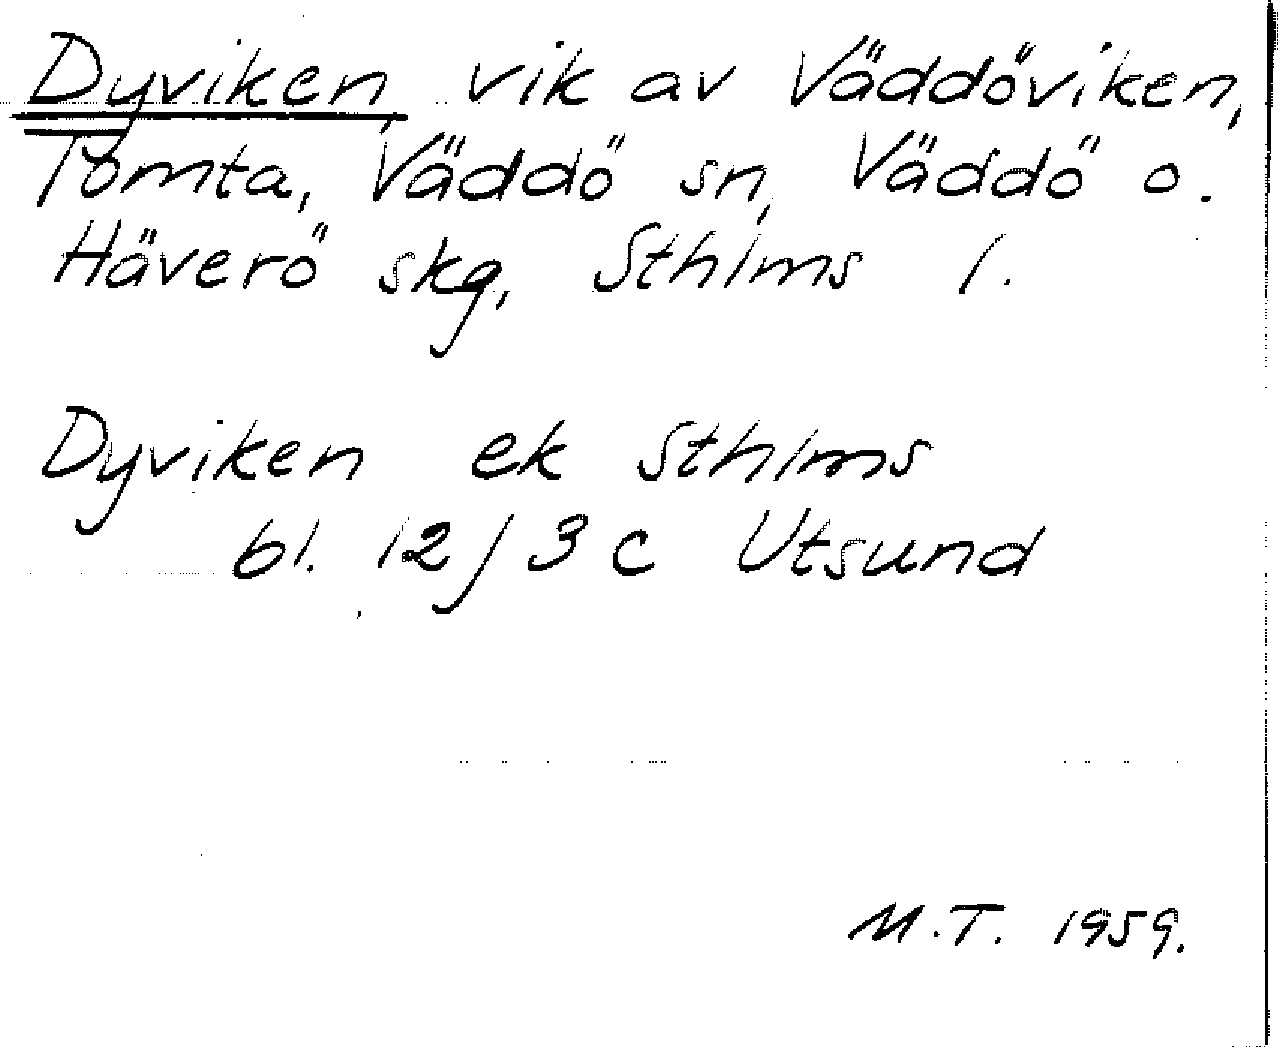 Dyviken, vik av Väddöviken,
Tomta, Väddö sn, Väddö o.
Häverö skg, Sthlms l.
Dyviken ek Sthlms
bl. 12j 3c Utsund
M.T. 1959.